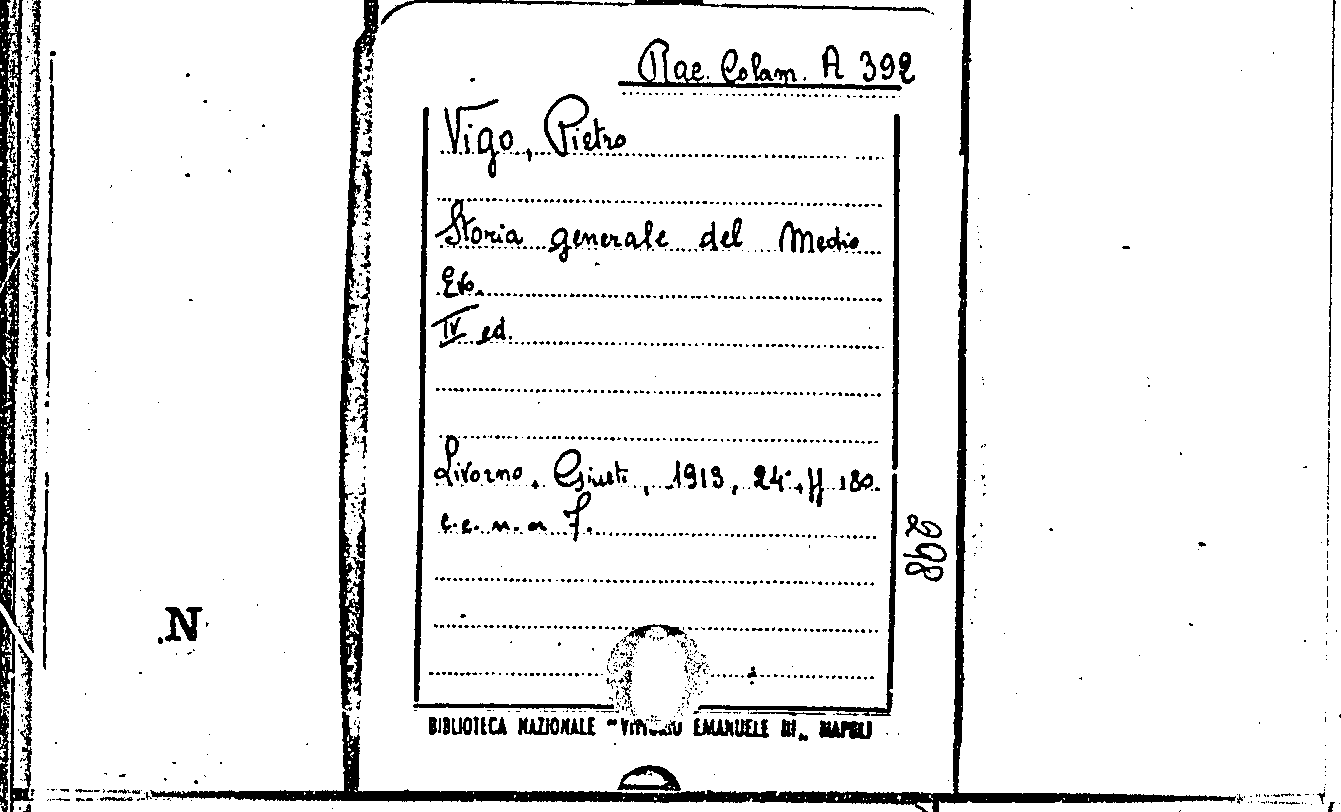 Rac. Colam. A 392
Vigo, Pietro
Storia generale del Medio
Evo.
IV ed.
Livorno, Giusti, 1913, 24°, ff 180.
c.c. n. a 7.
298
N
BIBLIOTECA NAZIONALE "VITTORIO EMANUELE III„ NAPOLI